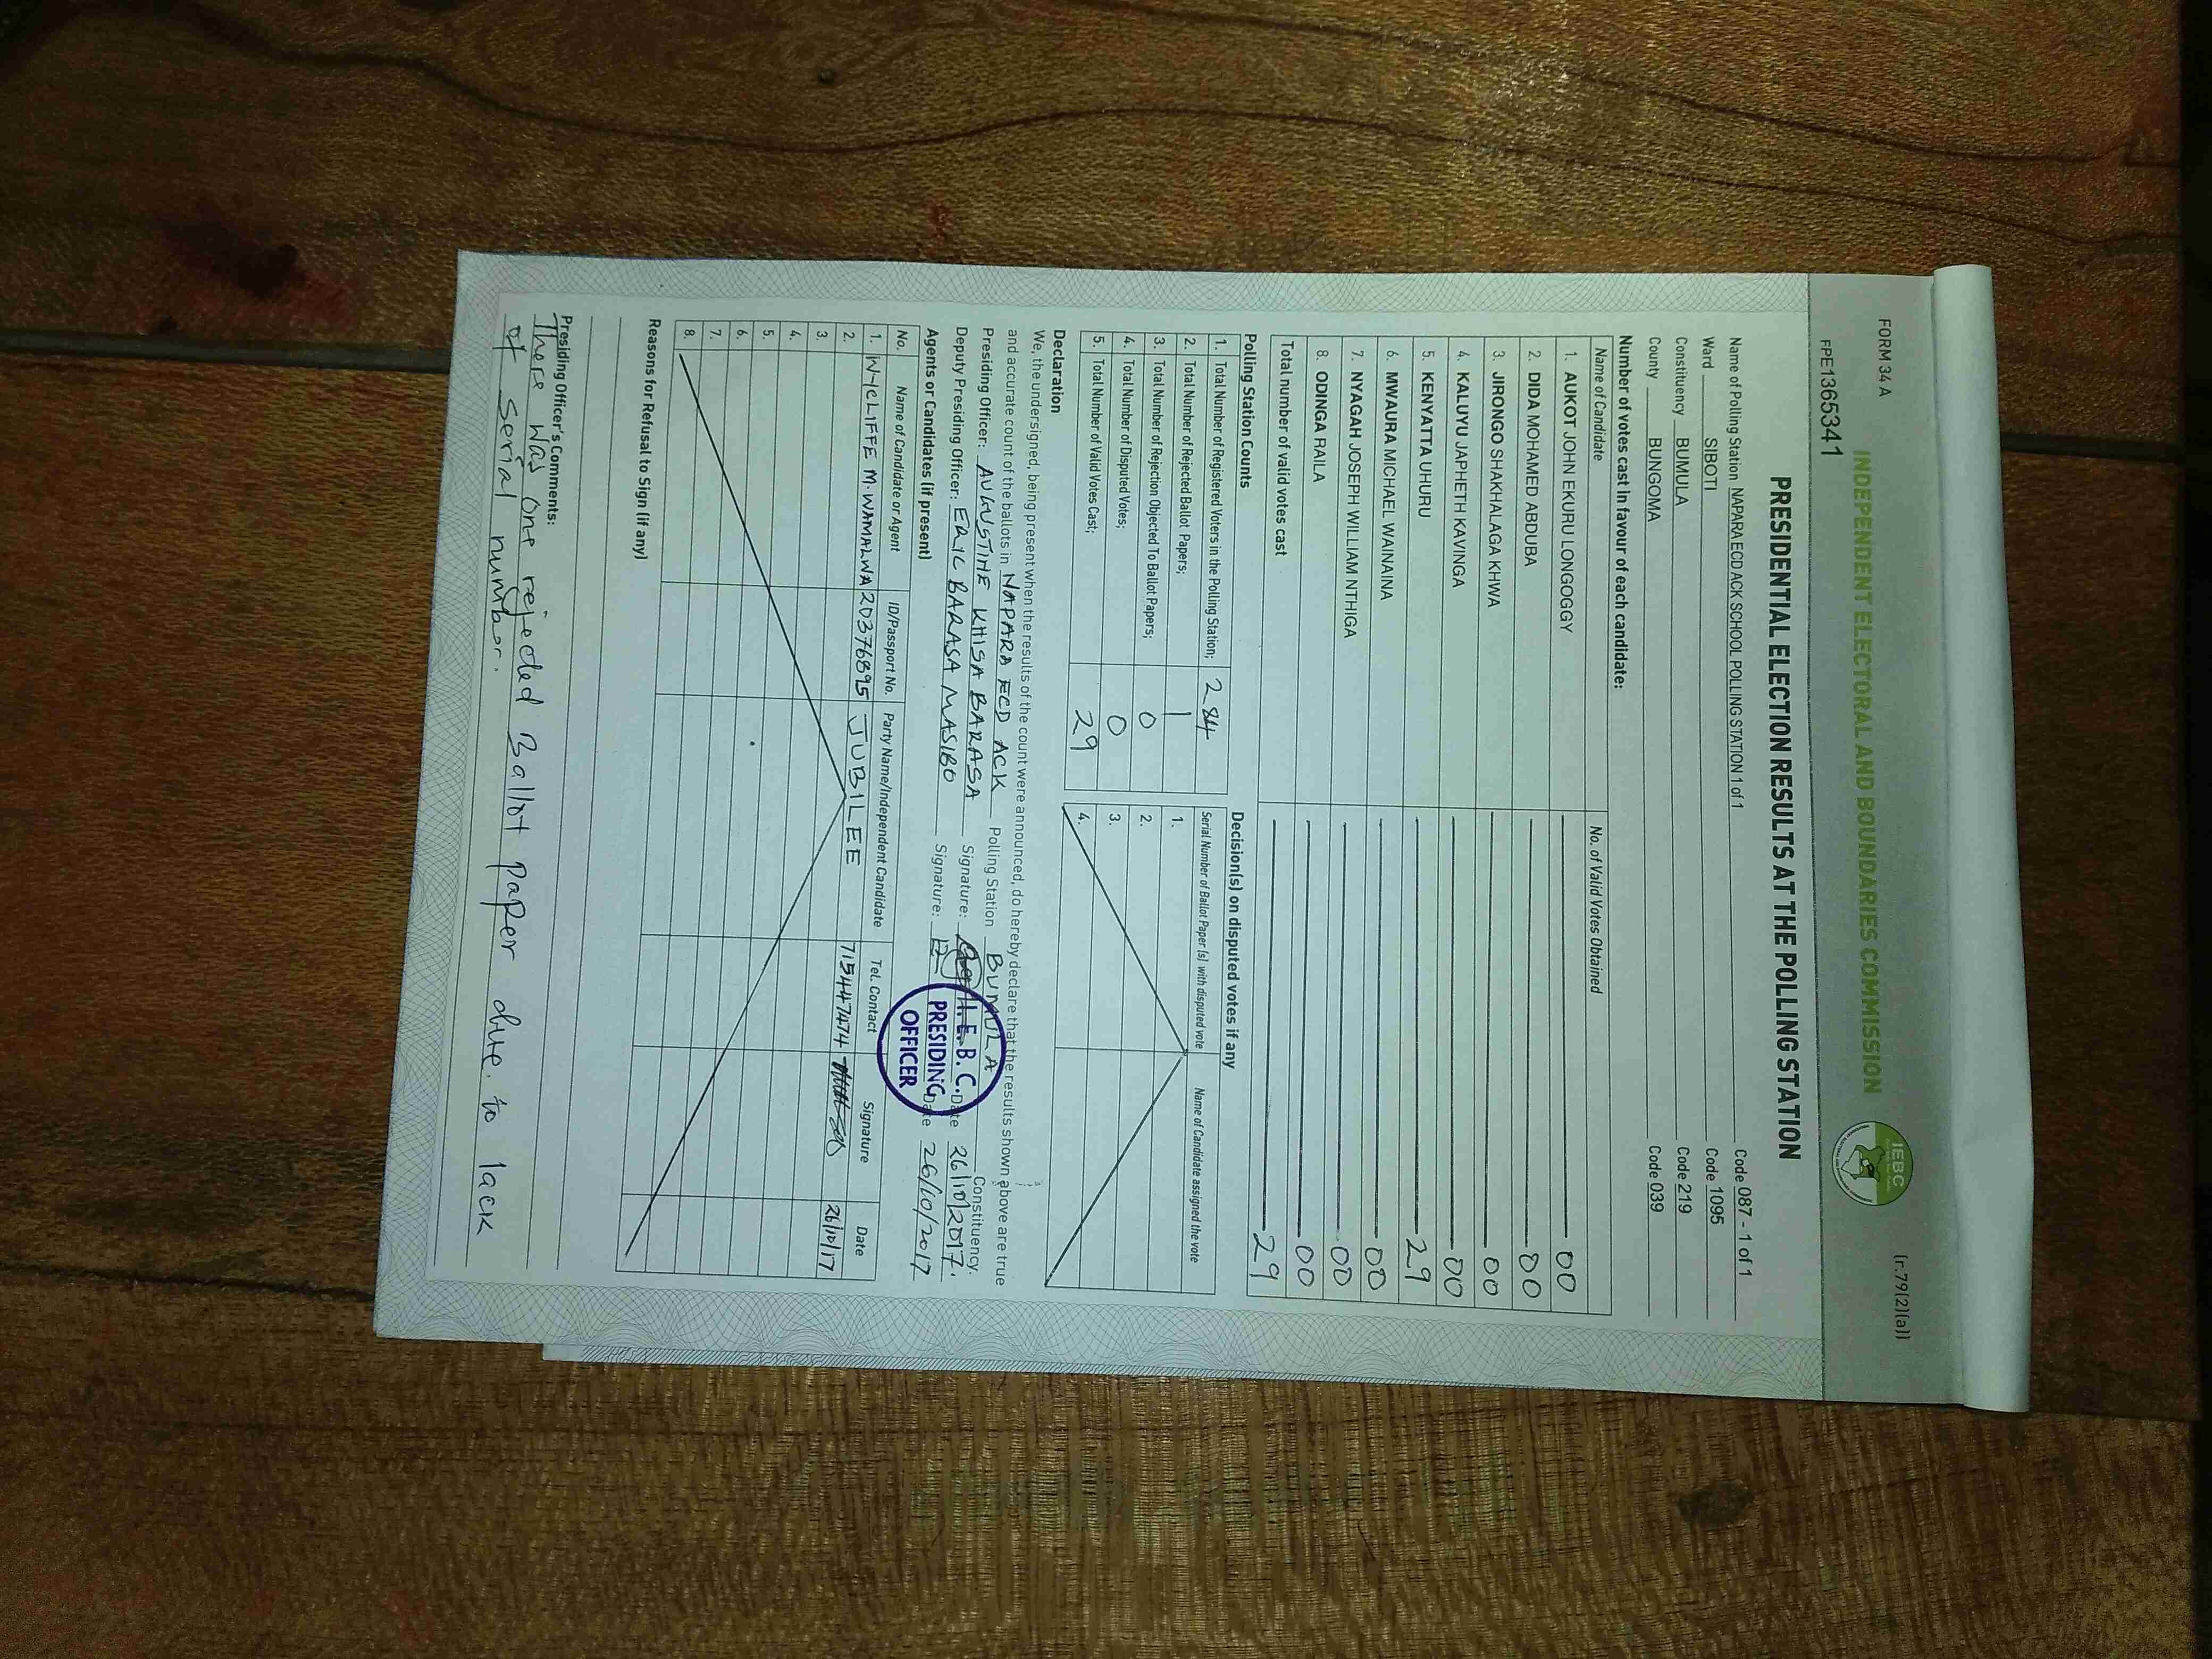 FORM 34 A
(r.79(2)(a))
INDEPENDENT ELECTORAL AND BOUNDARIES COMMISSION
IEBC
FPE1365341
PRESIDENTIAL ELECTION RESULTS AT THE POLLING STATION
Name of Polling Station NAPARA ECD ACK SCHOOL POLLING STATION 1 of 1 Code 087 - 1 of 1
Ward SIBOTI Code 1095
Constituency BUMULA Code 219
County BUNGOMA Code 039
Number of votes cast in favour of each candidate:
Name of Candidate No. of Valid Votes Obtained
1. AUKOT JOHN EKURU LONGOGGY 00
2. DIDA MOHAMED ABDUBA 00
3. JIRONGO SHAKHALAGA KHWA 00
4. KALUYU JAPHETH KAVINGA 00
5. KENYATTA UHURU 29
6. MWAURA MICHAEL WAINAINA 00
7. NYAGAH JOSEPH WILLIAM NTHIGA 00
8. ODINGA RAILA 00
Total number of valid votes cast 29
Polling Station Counts
1. Total Number of Registered Voters in the Polling Station; 284
2. Total Number of Rejected Ballot Papers; 1
3. Total Number of Rejection Objected To Ballot Papers; 0
4. Total Number of Disputed Votes; 0
5. Total Number of Valid Votes Cast; 29
Decision(s) on disputed votes if any
Serial Number of Ballot Paper (s) with disputed vote Name of Candidate assigned the vote
1.
2.
3.
4.
Declaration
We, the undersigned, being present when the results of the count were announced, do hereby declare that the results shown above are true
and accurate count of the ballots in NAPARA ECD ACK Polling Station BUMULA Constituency.
Presiding Officer: AUGUSTINE KHISA BARASA Signature: Date 26/10/2017.
Deputy Presiding Officer: ERIC BARASA MASIBO Signature: Date 26/10/2017
I. E. B. C.
PRESIDING
OFFICER
Agents or Candidates (if present)
No. Name of Candidate or Agent ID/Passport No. Party Name/Independent Candidate Tel. Contact Signature Date
1. WYCLIFFE M. WAMALWA 20376895 JUBILEE 715447474 26/10/17
2.
3.
4.
5.
6.
7.
8.
Reasons for Refusal to Sign (if any)
Presiding Officer's Comments:
There was one rejected Ballot paper due to lack
of serial number.